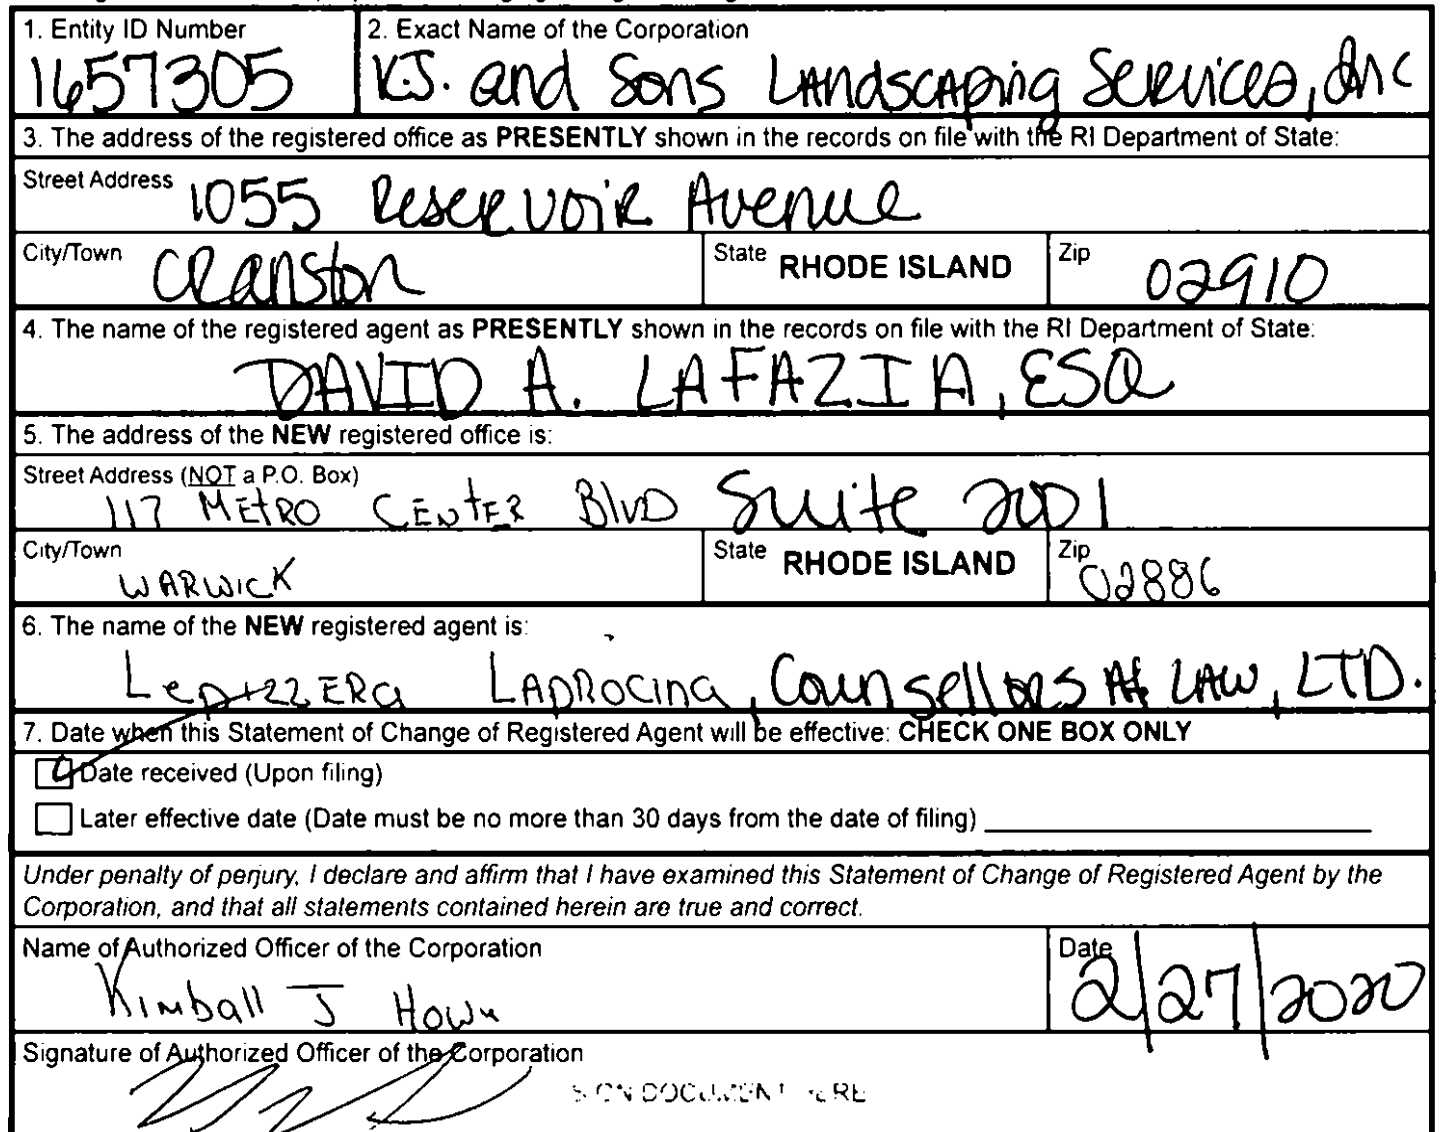 1. Entity ID Number
1657305
2. Exact Name of the Corporation
K.J. and Sons Landscaping Services, Inc
3. The address of the registered office as PRESENTLY shown in the records on file with the RI Department of State:
Street Address 1055 Reservoir Avenue
City/Town Cranston
State RHODE ISLAND
Zip 02910
4. The name of the registered agent as PRESENTLY shown in the records on file with the RI Department of State:
DAVID A. LAFAZIA, ESQ
5. The address of the NEW registered office is:
Street Address (NOT a P.O. Box)
117 METRO CENTER BLVD Suite 2001
City/Town
WARWICK
State RHODE ISLAND
Zip
02886
6. The name of the NEW registered agent is:
Lepizzera Laprocina, Counsellors At Law, LTD.
7. Date when this Statement of Change of Registered Agent will be effective: CHECK ONE BOX ONLY
Date received (Upon filing)
Later effective date (Date must be no more than 30 days from the date of filing)
Under penalty of perjury, I declare and affirm that I have examined this Statement of Change of Registered Agent by the
Corporation, and that all statements contained herein are true and correct.
Name of Authorized Officer of the Corporation
Kimball J
Date
2/27/2020
Signature of Authorized Officer of the Corporation
SIGN DOCUMENT HERE